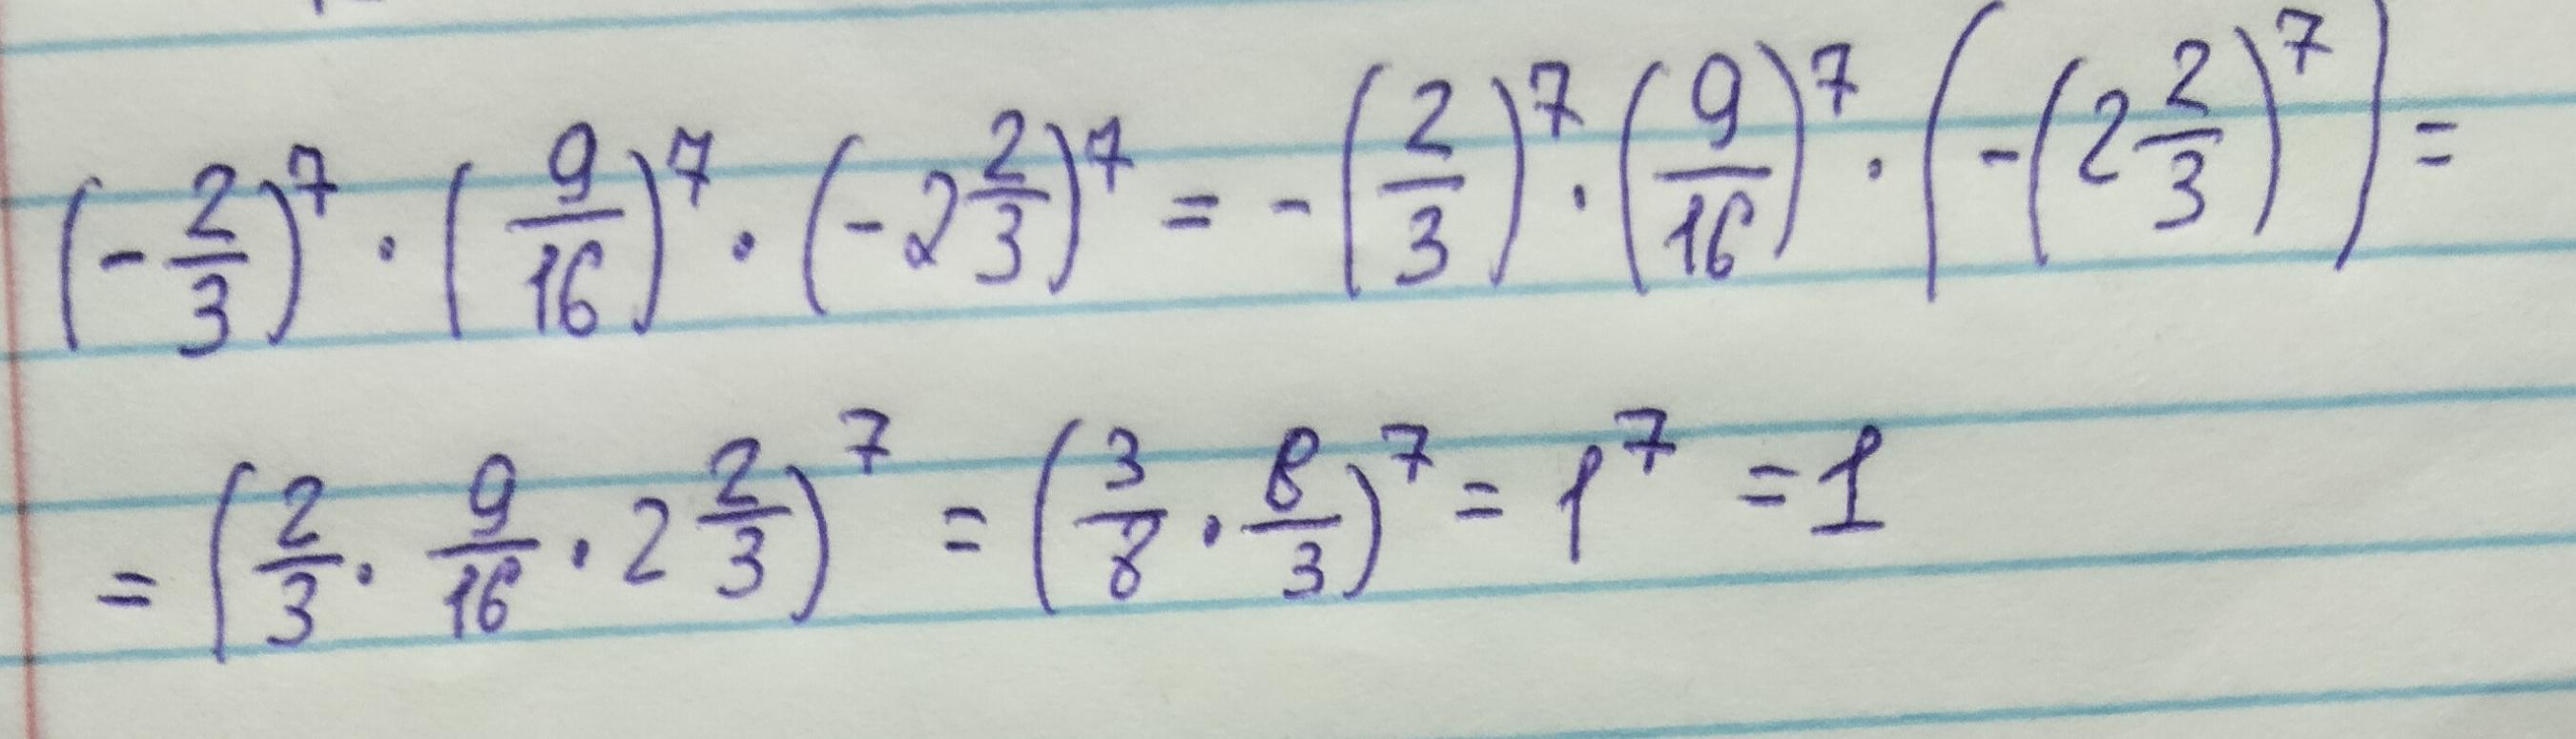 (-2/3)^7 · (9/16)^7 · (-2 2/3)^7 = -(2/3)^7 · (9/16)^7 · (-(2 2/3)^7) =
= (2/3 · 9/16 · 2 2/3)^7 = (3/8 · 8/3)^7 = 1^7 = 1